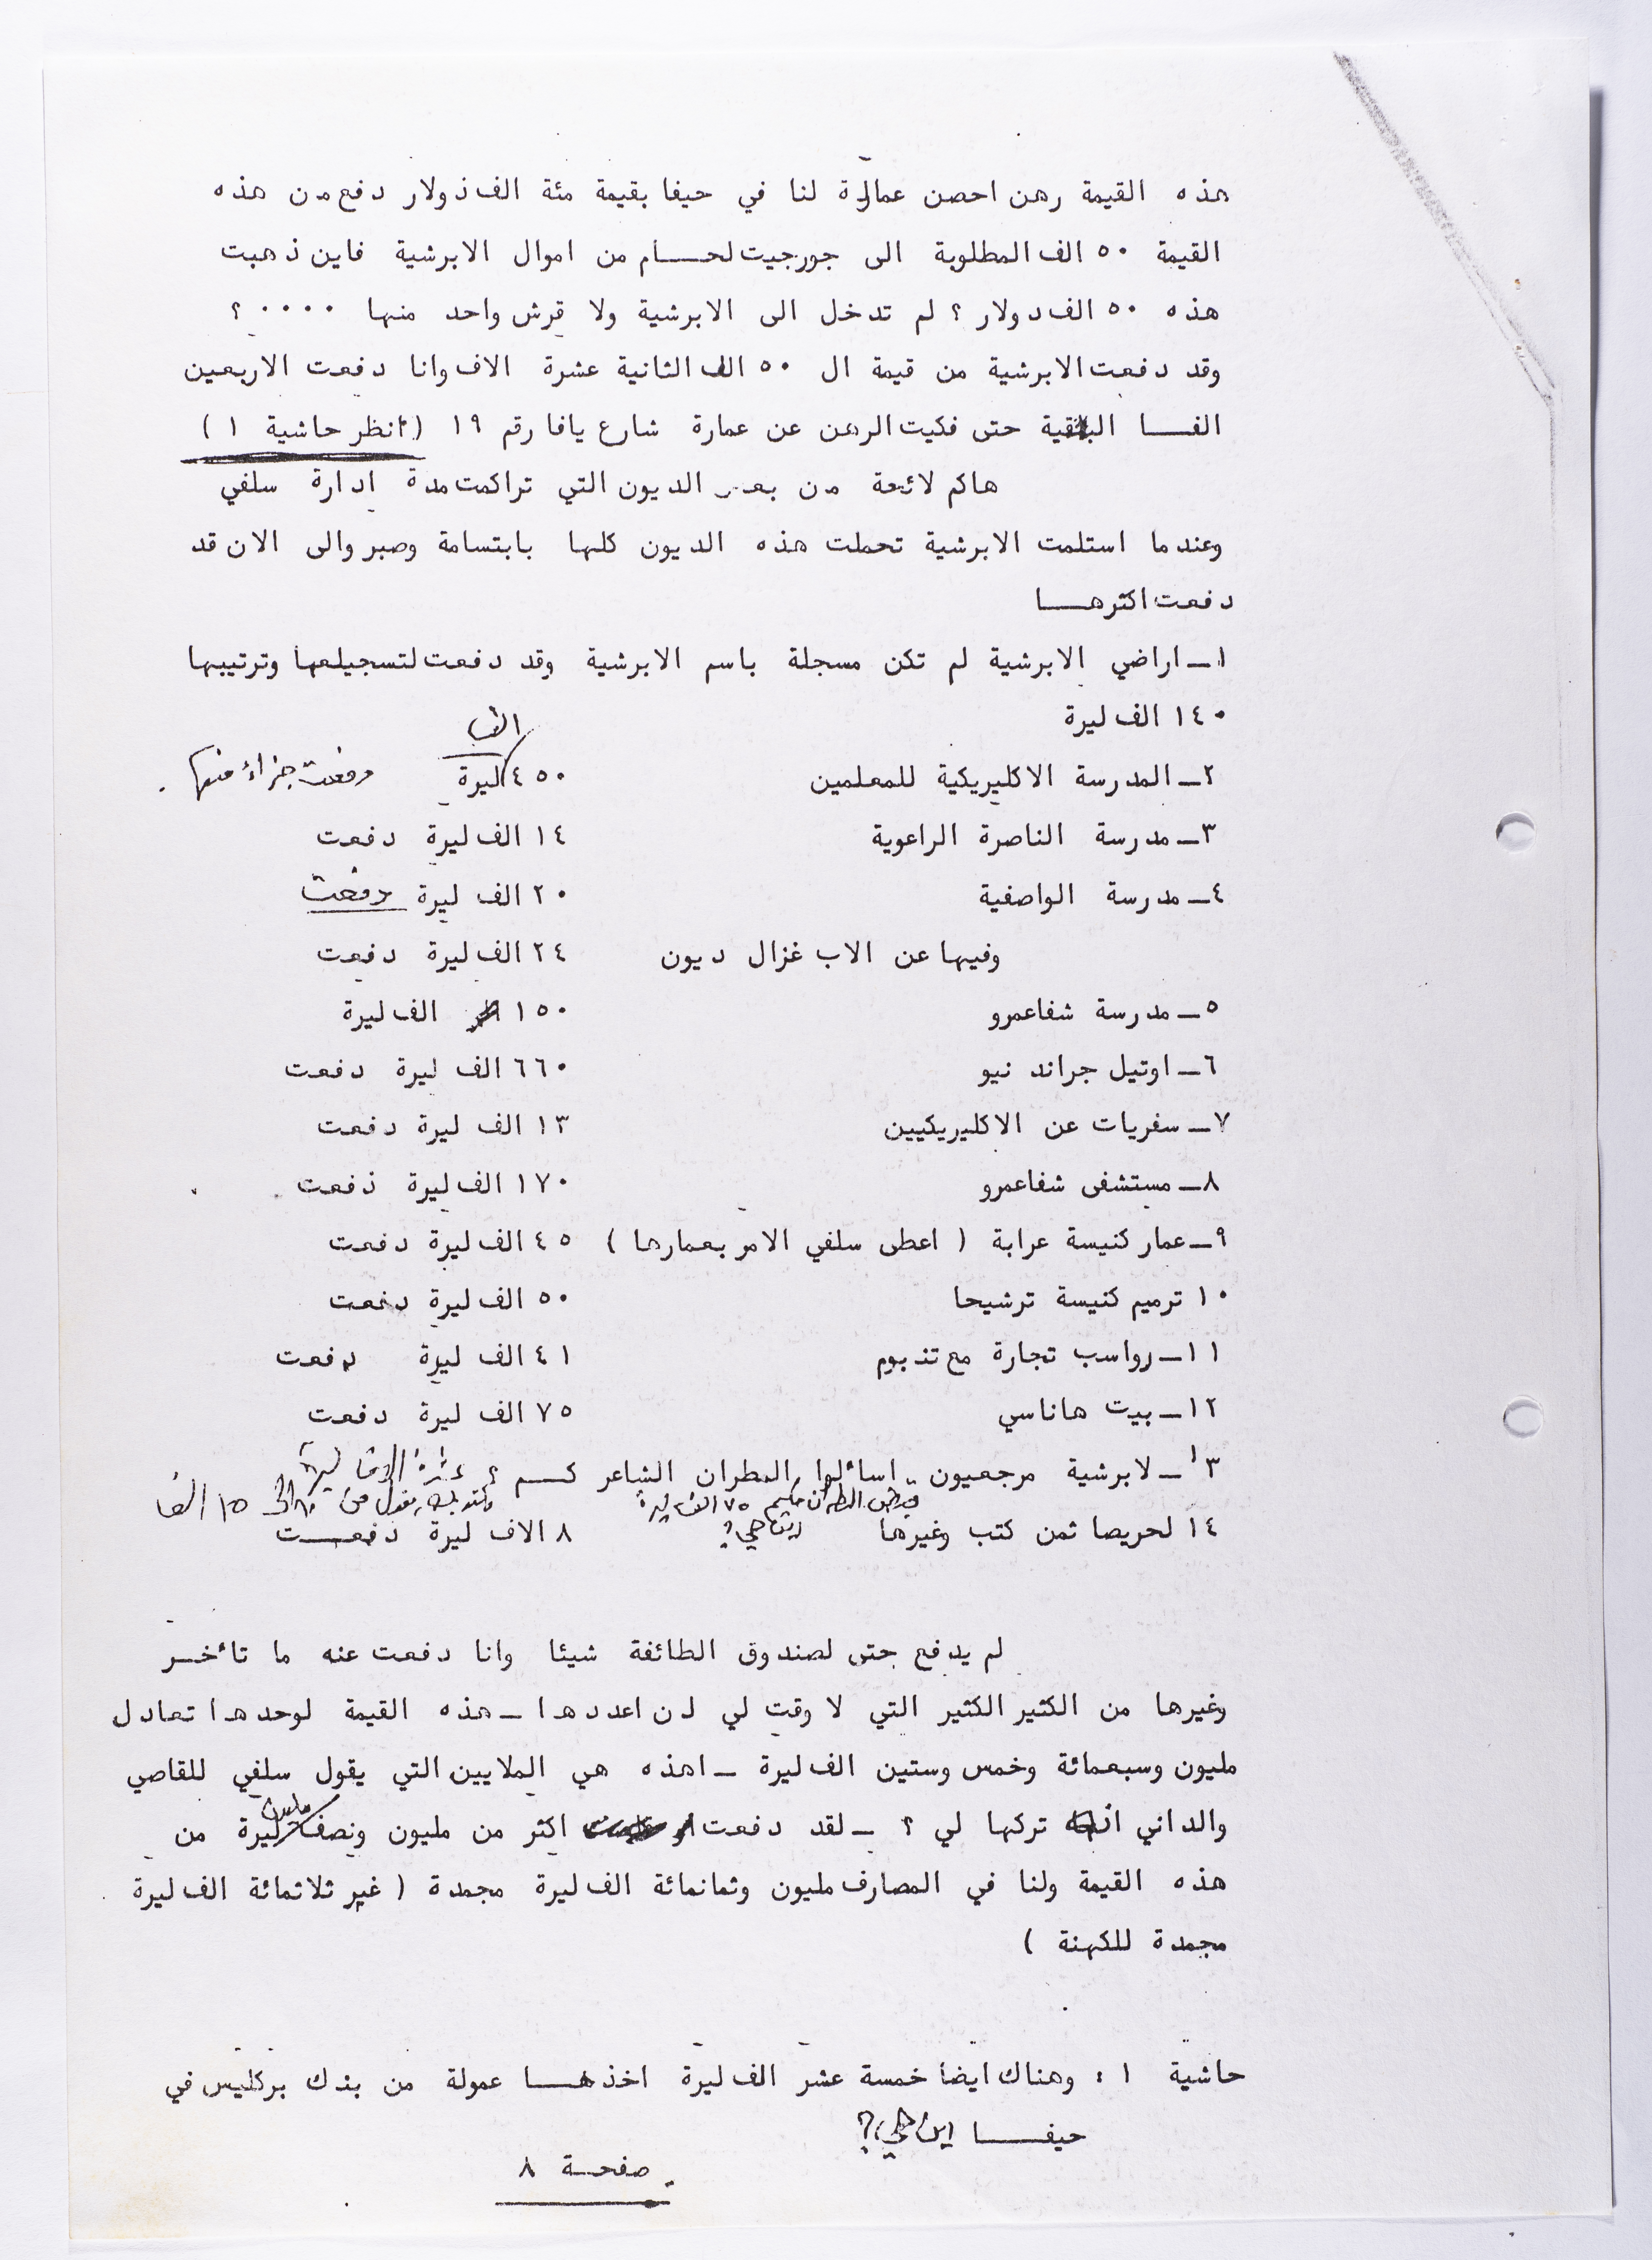 هذه القيمة رهن احصن عمارة لنا في حيفا بقيمة مئة الف دولار دفع من هذه
القيمة ٥٠ الف المطلوبة الى جورجيت لحام من اموال الابرشية فاين ذهبت
هذه ٥٠ الف دولار ؟ لم تدخل الى الابرشية ولا قرش واحد منها ٠٠٠٠ ؟
وقد دفعت الابرشية من قيمة ال ٥٠ الف الثانية عشرة الاف وانا دفعت الاربعين
الفا البقية حتى فكيت الرهن عن عمارة شارع يافا رقم ١٩ (أنظر حاشية ١ )
هاكم لائحة من بعض الديون التي تراكمت مدة ادارة سلفي
وعندما استلمت الابرشية تحملت هذه الديون كلها بابتسامة وصبر والى الان قد
دفعت اكثرها
١ـ اراضي الابرشية لم تكن مسجلة باسم الابرشية وقد دفعت لتسجيلها وترتيبها
١٤٠ الف ليرة
٢ـ المدرسة الاكليريكية للمعلمين ٤٥٠ الف ليرة دفعت جزاء منها .
٣ـ مدرسة الناصرة الراعوية ١٤ الف ليرة دفعت
٤ـ مدرسة الواصفية ٢٠ الف ليرة دفعت
وفيها عن الاب غزال ديون ٢٤ الف ليرة دفعت
٥ـ مدرسة شفاعمرو ١٥٠ الف ليرة
٦ـ اوتيل جراند نيو ٦٦٠ الف ليرة دفعت
٧ـ سفريات عن الاكليريكيين ١٣ الف ليرة دفعت
٨ـ مستشفى شفاعمرو ١٧٠ الف ليرة دفعت
٩ـ عمار كنيسة عرابة ( اعطى سلفي الامر بعمارها ) ٤٥ الف ليرة دفعت
١٠ ترميم كنيسة ترشيحا ٥٠ الف ليرة دفعت
١١ـ رواسب تجارة مع تنبوم ٤١ الف ليرة دفعت
١٢ـ بيت هاناسي ٧٥ الف ليرة دفعت
١٣ـ لابرشية مرجعيون اسألوا المطران الشاعر كم ؟ عشرة الاف ليرة
قبض المطران حكيم ٧٥ الف ليرة اين هي ؟
١٤ لحريصا ثمن كتب وغيرها ٨ الاف ليرة دفعت
لم يدفع حتى لصندوق الطائفة شيئا وانا دفعت عنه ما تأخر
وغيرها من الكثير الكثير التي لا وقت لي لان اعددها ـ هذه القيمة لوحدها تعادل
مليون وسبعمائة وخمس وستين الف ليرة ـ اهذه هي الملايين التي يقول سلفي للقاصي
والداني انه تركها لي ؟ ـ لقد دفعت اكثر من مليون ونصف مليون ليرة من
هذه القيمة ولنا في المصارف مليون وثمانمائة الف ليرة مجمدة ( غير ثلاثمائة الف ليرة
مجمدة للكهنة )
حاشية ١ : وهناك ايضا خمسة عشر الف ليرة اخذها عمولة من بنك بركليس في
حيفا اين هي ؟
صفحة ٨